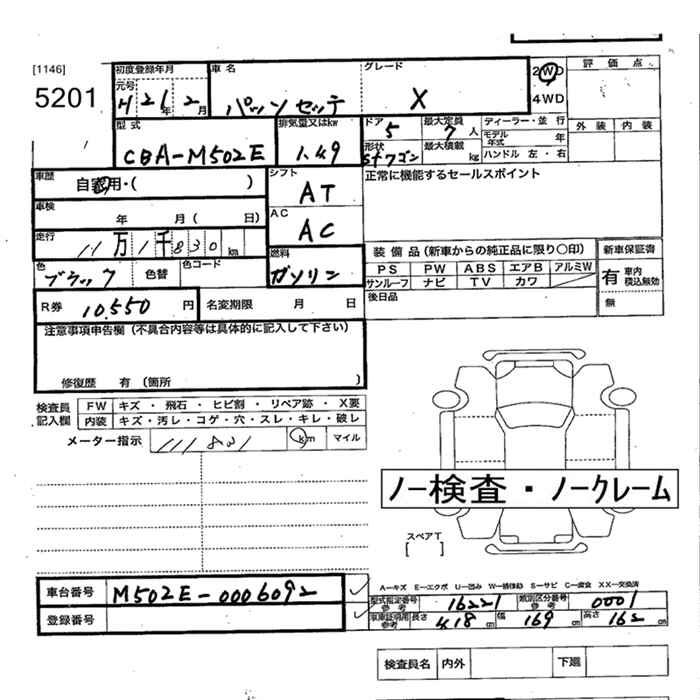 [1146]
5201
初度登録年月
元号 H 21年 2月
車名
パッソセッテ
グレード
X
2WD
4WD
評価点
外装 内装
型式
CBA-M502E
排気量又はkw
1.49
ドア 5
形状 5ドワゴン
最大定員 7人
最大積載 kg
ディーラー・並行
モデル年式 年
ハンドル 左・右
車歴
自家用・( )
シフト
AT
正常に機能するセールスポイント
車検
年 月( 日)
AC
AC
走行
11万1千830km
色
ブラック 色替
色コード
燃料
ガソリン
装備品(新車からの純正品に限り○印)
PS PW ABS エアB アルミW
サンルーフ ナビ TV カワ
後日品
新車保証書
有 車内積込無効
無
R券 10,550円
名変期限 月 日
注意事項申告欄(不具合内容等は具体的に記入して下さい)
修復歴 有(箇所 )
検査員記入欄
FW キズ・飛石・ヒビ割・リペア跡・X要
内装 キズ・汚レ・コゲ・穴・スレ・キレ・破レ
メーター指示 km マイル
ノー検査・ノークレーム
スペアT
[ ]
A-キズ E-エクボ U-凹み W-補修跡 S-サビ C-腐食 XX-交換済
車台番号 M502E-0006092
登録番号
型式指定番号参考 16221 類別区分番号参考 0001
車庫証明用参考 長さ 418cm 幅 169cm 高さ 162cm
検査員名 内外 下廻